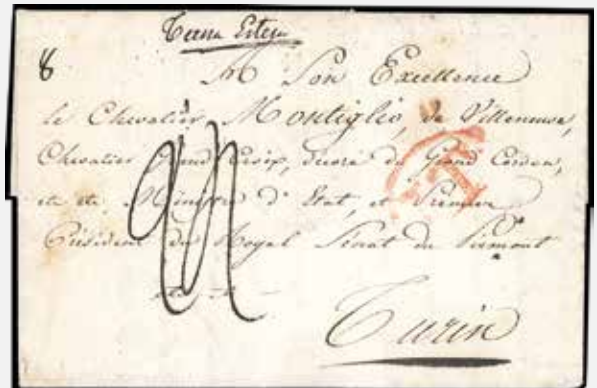 8
A Son Excellence
le Chevalier Montiglio, de Villeneuve,
Chevalier Grand Croix, décoré du Grand Cordon,
etc etc Ministre d'Etat, et Premier
Président du Royal Sénat de Piemont
Turin